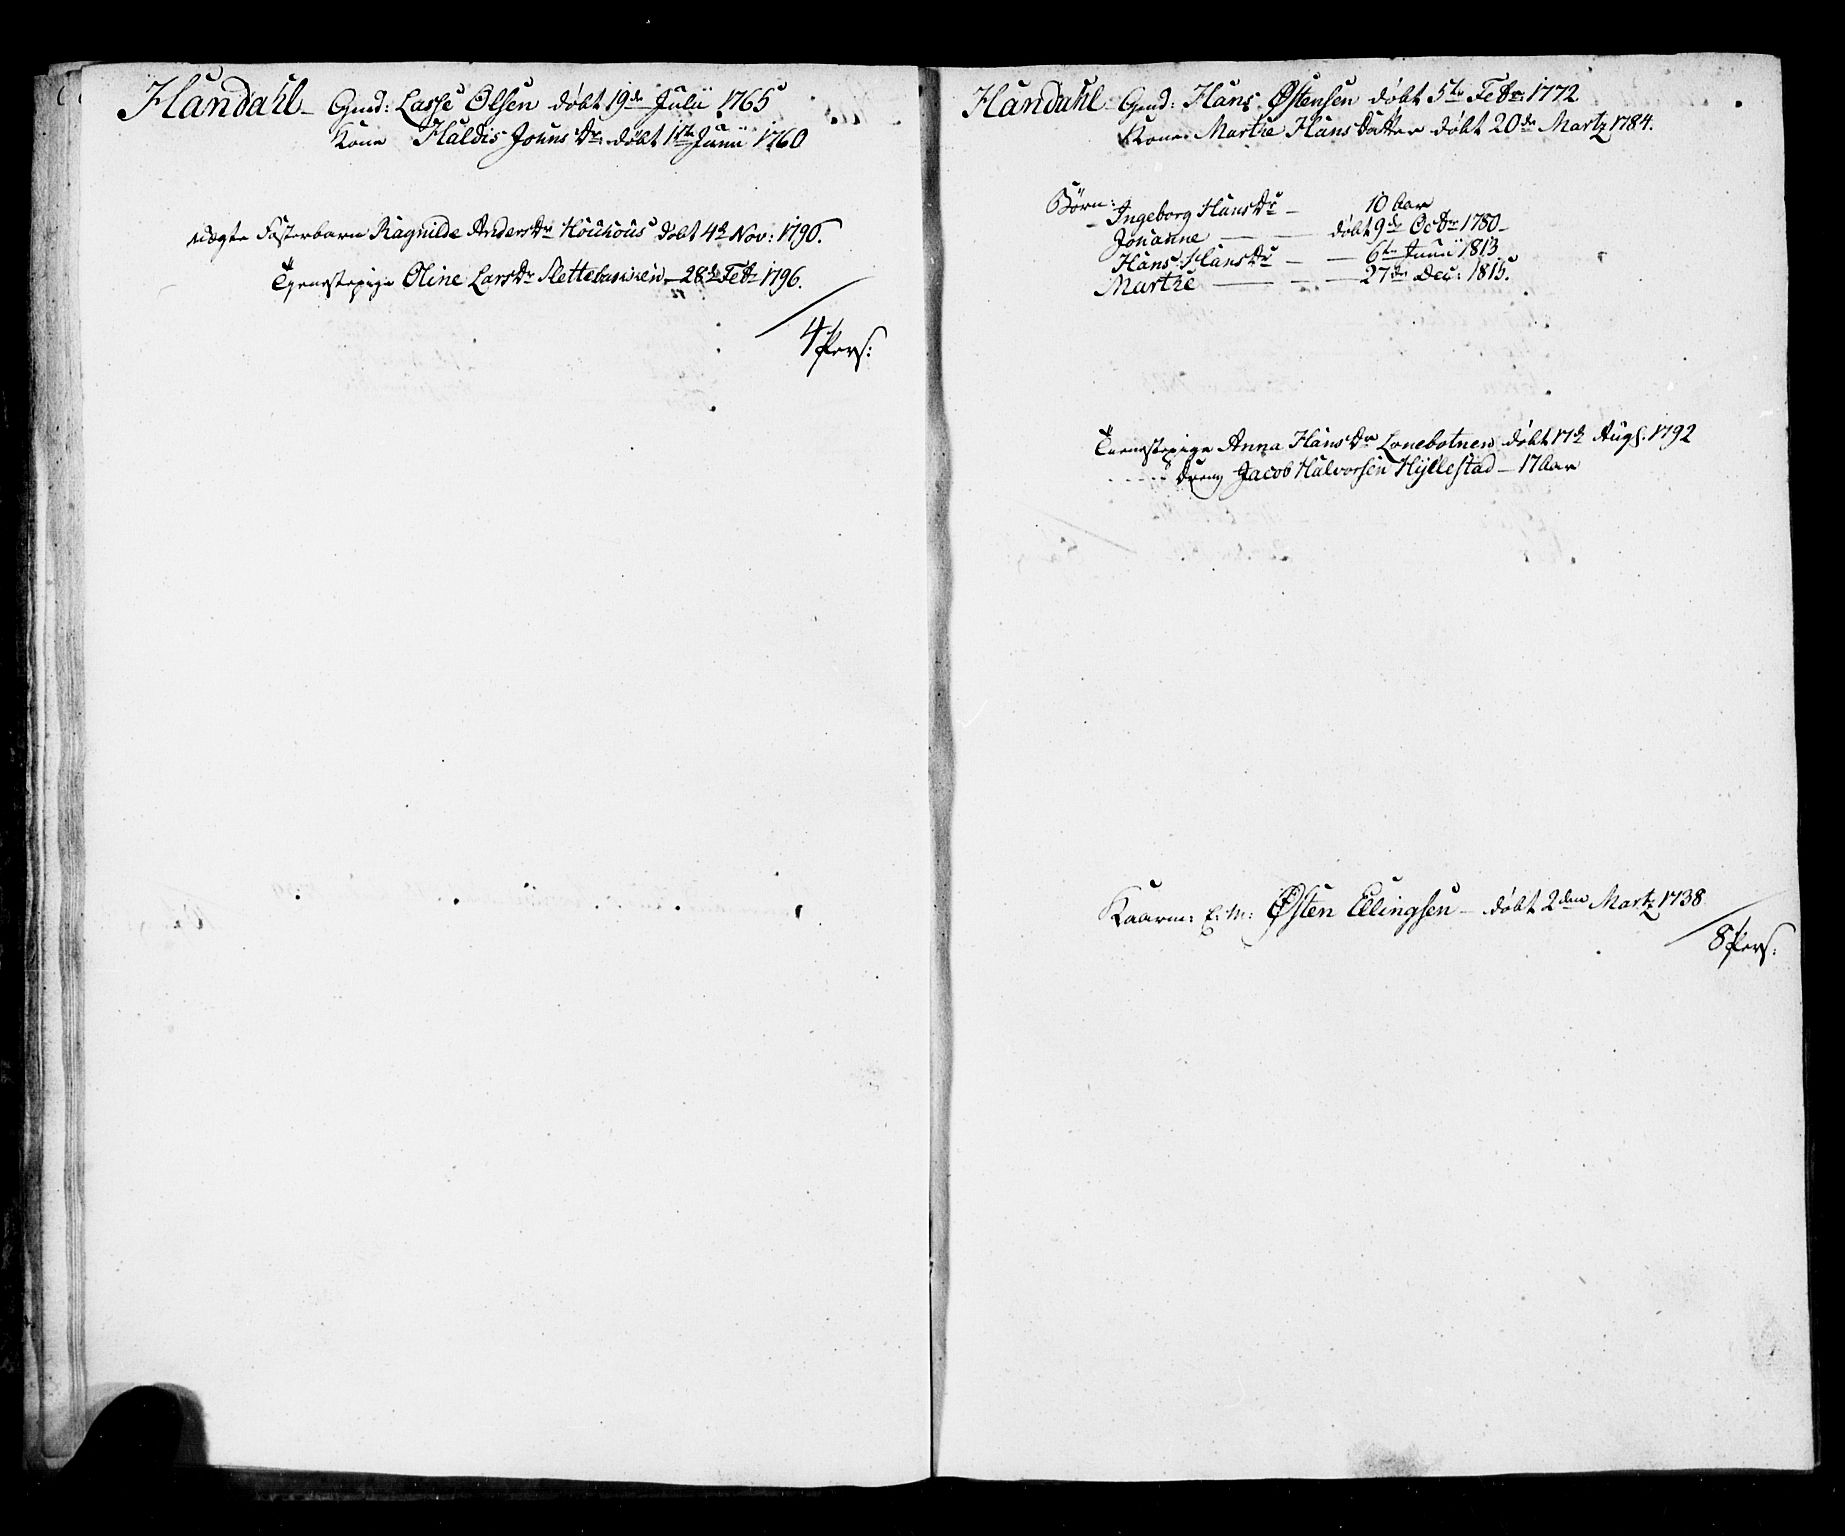 Handahl - Gmd: Lasse Olsen døbt 19de Julii 1765
Kone Haldis Johns Dr: døbt 1te Junii 1760
Ægte Fosterbarn Ragnilde Anders Dr Houhous døbt 4de Nov: 1790.
Tjenestepige Oline Lars Dr - 28de Febr 1796.
4 Pers:
Handahl Gmd: Hans Østensen døbt 5te Febr: 1772
Kone Marthe Hans Datter døbt 20de Martz 1784.
Børn: Ingeborg Hans Dr - 10 Aar
Johanne - døbt 9de Octbr 1780 -
Hans Hans Dr - 6te Junii 1813
Marthe - 27de Dec: 1815.
Tienestepige Anna Hans Dr Lonebotnen døbt 17de Aug. 1792
- - - - Dreng Jacob Halvorsen Hyllestad - 17 Aar
Kaarm: E: M: Østen Ellingsen - døbt 2den Martz 1738
8 Pers: